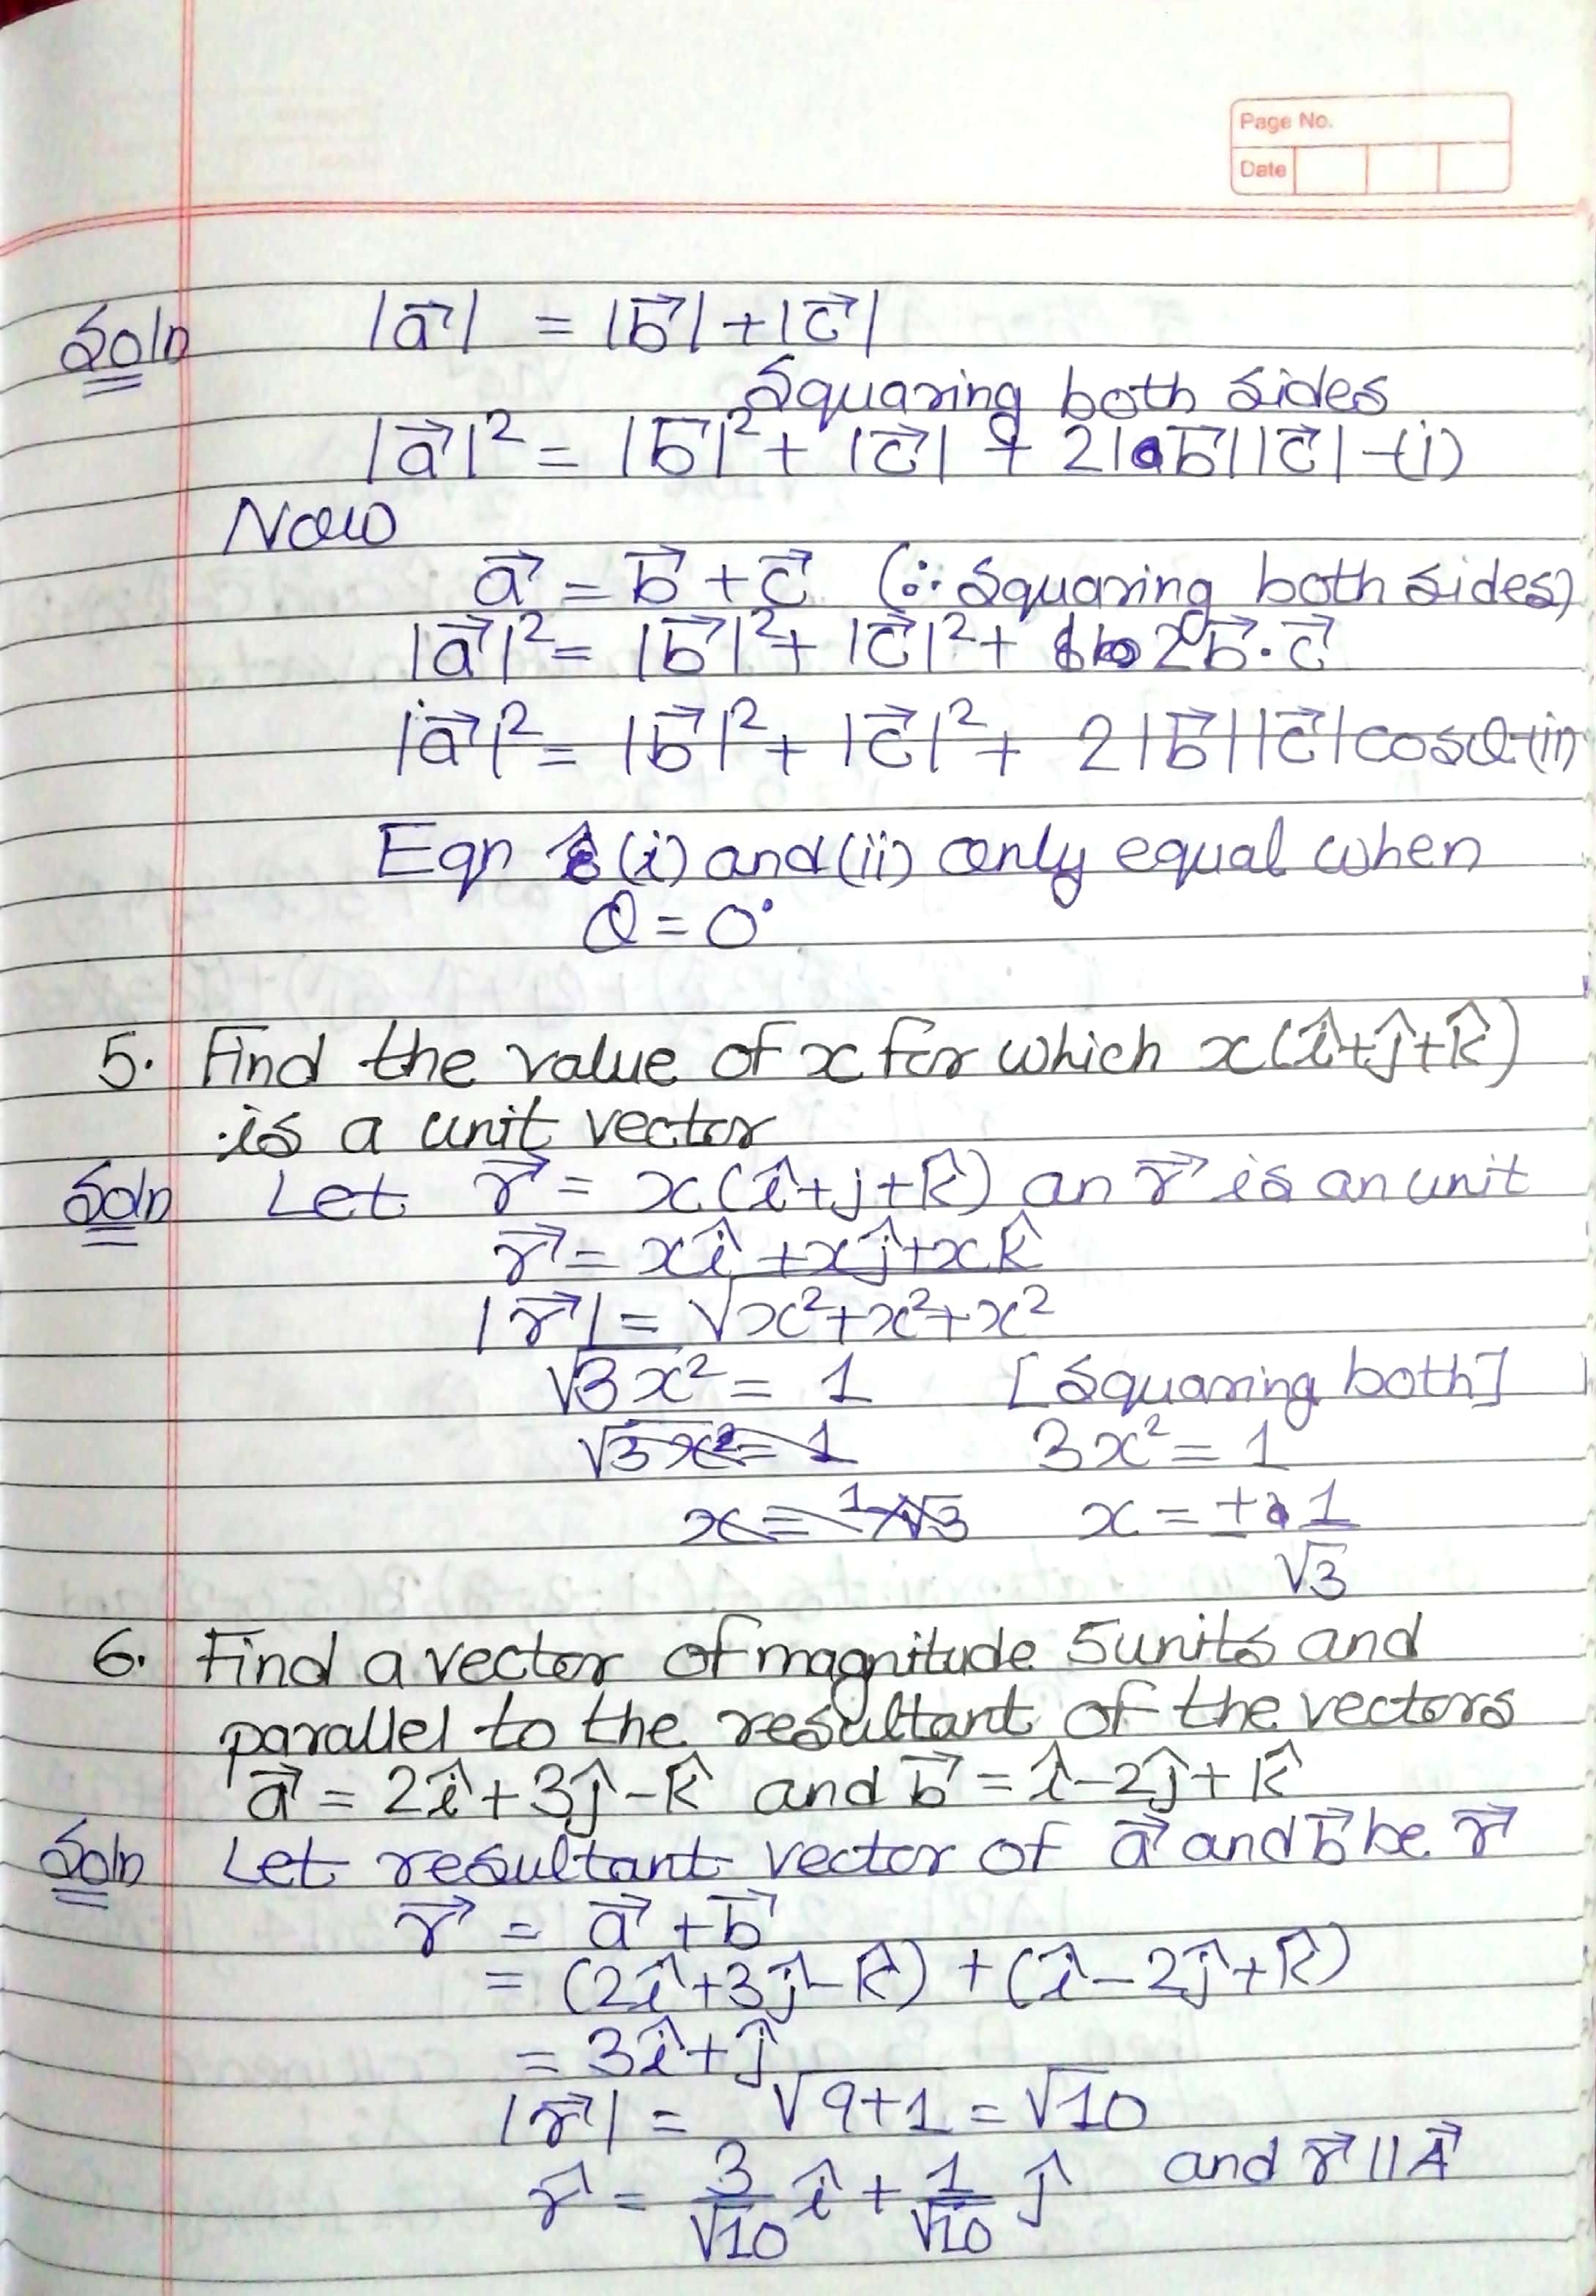 Page No.
Date
Soln |a⃗| = |b⃗| + |c⃗|
Squaring both sides
|a⃗|² = |b⃗|² + |c⃗| + 2|b⃗||c⃗| -(i)
Now
a⃗ = b⃗ + c⃗ (∵ Squaring both sides)
|a⃗|² = |b⃗|² + |c⃗|² + 2b⃗·c⃗
|a⃗|² = |b⃗|² + |c⃗|² + 2|b⃗||c⃗|cosθ-(ii)
Eqn (i) and (ii) only equal when
θ = 0°
5. Find the value of x for which x(î+ĵ+k̂)
is a unit vector
Soln Let r⃗ = x(î+j+k̂) an r⃗ is an unit
r⃗ = xî + xĵ + xk̂
|r⃗| = √x²+x²+x²
√3x² = 1 [Squaring both]
√3x² = 1 3x² = 1
x = 1/√3 x = ±1/√3
6. Find a vector of magnitude 5units and
parallel to the resultant of the vectors
a⃗ = 2î+3ĵ-k̂ and b⃗ = î-2ĵ+k̂
Soln Let resultant vector of a⃗ and b⃗ be r⃗
r⃗ = a⃗ + b⃗
= (2î+3ĵ-k̂) + (î-2ĵ+k̂)
= 3î+ĵ
|r⃗| = √9+1 = √10
r⃗ = 3/√10 î + 1/√10 ĵ and r⃗ || A⃗